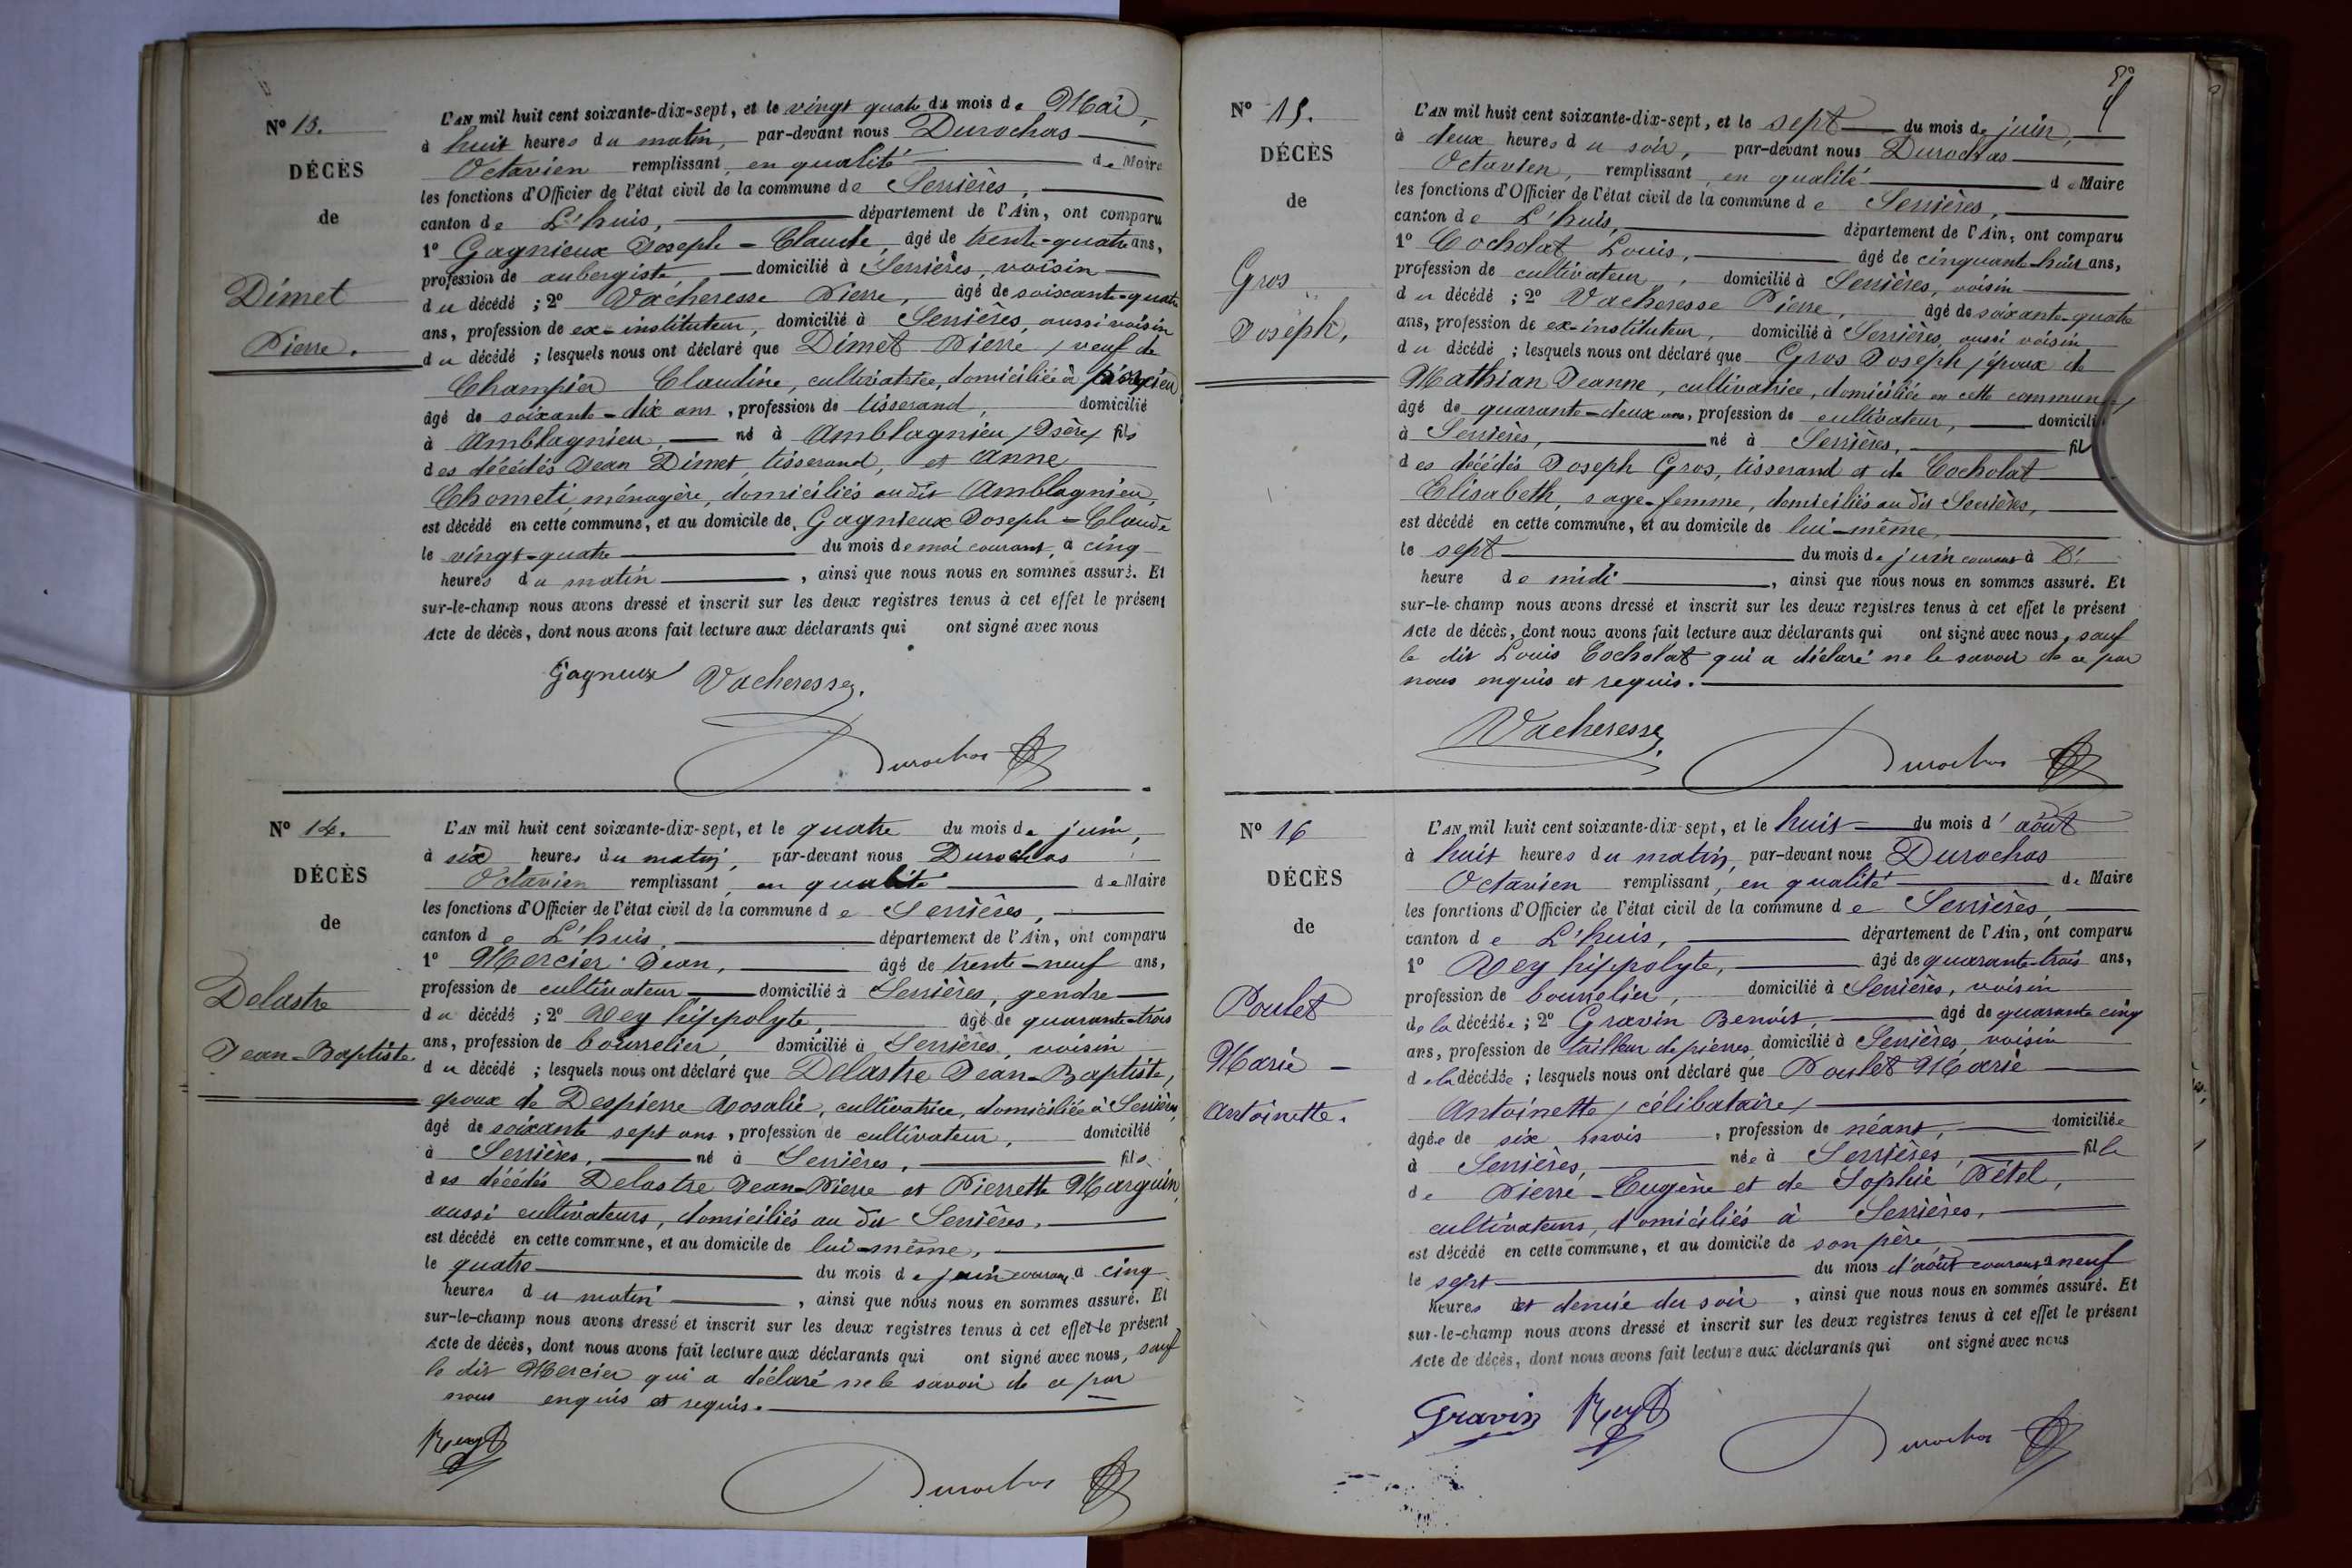 N° 13.
DÉCÈS
de
Dimet
Pierre.
L'AN mil huit cent soixante-dix-sept, et le vingt quatre du mois de Mai,
à huit heures du matin, par-devant nous Durochas
Octavien remplissant, en qualité de Maire
les fonctions d'Officier de l'état civil de la commune de Serrières,
canton de L'huis, département de l'Ain, ont comparu
1° Gagnieux Joseph-Claude, âgé de trente-quatre ans,
profession de aubergiste, domicilié à Serrières, voisin
du décédé ; 2° Vacheresse Pierre, âgé de soixante-quatre
ans, profession de ex-instituteur, domicilié à Serrières, aussi voisin
du décédé ; lesquels nous ont déclaré que Dimet Pierre / veuf de
Champier Claudine, cultivatrice, domiciliée à
âgé de soixante-dix ans, profession de tisserand, domicilié
à Amblagnieu, né à Amblagnieu / Isère / fils
des décédés Jean Dimet, tisserand, et Anne
Chometi, ménagère, domiciliés au dit Amblagnieu,
est décédé en cette commune, et au domicile de Gagnieux Joseph-Claude
le vingt-quatre du mois de mai courant, à cinq
heures du matin, ainsi que nous nous en sommes assuré. Et
sur-le-champ nous avons dressé et inscrit sur les deux registres tenus à cet effet le présent
Acte de décès, dont nous avons fait lecture aux déclarants qui ont signé avec nous
Gagnieux Vacheresse.
Durochas
N° 14.
DÉCÈS
de
Delastre
Jean-Baptiste
L'AN mil huit cent soixante-dix-sept, et le quatre du mois de juin,
à six heures du matin, par-devant nous Durochas
Octavien remplissant, en qualité de Maire
les fonctions d'Officier de l'état civil de la commune de Serrières,
canton de L'huis, département de l'Ain, ont comparu
1° Mercier Jean, âgé de trente-neuf ans,
profession de cultivateur domicilié à Serrières, gendre
du décédé ; 2° Rey hippolyte, âgé de quarante-trois
ans, profession de bourrelier, domicilié à Serrières, voisin
du décédé ; lesquels nous ont déclaré que Delastre Jean-Baptiste,
époux de Despierre Rosalie, cultivatrice, domiciliée à Serrières,
âgé de soixante sept ans, profession de cultivateur, domicilié
à Serrières, né à Serrières, fils
des décédés Delastre Jean-Pierre et Pierrette Marguin,
aussi cultivateurs, domiciliés au dit Serrières,
est décédé en cette commune, et au domicile de lui-même,
le quatre du mois de juin courant, à cinq
heures du matin, ainsi que nous nous en sommes assuré. Et
sur-le-champ nous avons dressé et inscrit sur les deux registres tenus à cet effet le présent
Acte de décès, dont nous avons fait lecture aux déclarants qui ont signé avec nous, sauf
le dit Mercier qui a déclaré ne le savoir de ce par
nous enquis et requis.
Rey
Durochas
N° 15.
DÉCÈS
de
Gros
Joseph,
L'AN mil huit cent soixante-dix-sept, et le sept du mois de juin,
à deux heures du soir, par-devant nous Durochas
Octavien, remplissant, en qualité de Maire
les fonctions d'Officier de l'état civil de la commune de Serrières,
canton de L'huis, département de l'Ain, ont comparu
1° Cocholat Louis, âgé de cinquante-huit ans,
profession de cultivateur, domicilié à Serrières, voisin
du décédé ; 2° Vacheresse Pierre, âgé de soixante-quatre
ans, profession de ex-instituteur, domicilié à Serrières, aussi voisin
du décédé ; lesquels nous ont déclaré que Gros Joseph / époux de
Mathian Jeanne, cultivatrice, domiciliée en cette commune /
âgé de quarante-deux ans, profession de cultivateur, domicilié
à Serrières, né à Serrières, fils
des décédés Joseph Gros, tisserand et de Cocholat
Elisabeth, sage-femme, domiciliés au dit Serrières,
est décédé en cette commune, et au domicile de lui-même,
le sept du mois de juin courant à l'
heure de midi, ainsi que nous nous en sommes assuré. Et
sur-le-champ nous avons dressé et inscrit sur les deux registres tenus à cet effet le présent
Acte de décès, dont nous avons fait lecture aux déclarants qui ont signé avec nous, sauf
le dit Louis Cocholat qui a déclaré ne le savoir de ce par
nous enquis et requis.
Vacheresse,
Durochas
N° 16
DÉCÈS
de
Poulet
Marie -
Antoinette.
L'AN mil huit cent soixante-dix-sept, et le huit du mois d'août
à huit heures du matin, par-devant nous Durochas
Octavien remplissant, en qualité de Maire
les fonctions d'Officier de l'état civil de la commune de Serrières,
canton de L'huis, département de l'Ain, ont comparu
1° Rey hippolyte, âgé de quarante-trois ans,
profession de bourrelier, domicilié à Serrières, voisin
de la décédée ; 2° Gravin Benoit, âgé de quarante cinq
ans, profession de tailleur de pierres, domicilié à Serrières, voisin
de la décédée ; lesquels nous ont déclaré que Poulet Marie
Antoinette / célibataire /
âgée de six mois, profession de néant, domiciliée
à Serrières, née à Serrières, fille
de Pierre-Eugène et de Sophie Pétel,
cultivateurs, domiciliés à Serrières,
est décédé en cette commune, et au domicile de son père,
le sept du mois d'août courant à neuf
heures et demie du soir, ainsi que nous nous en sommes assuré. Et
sur-le-champ nous avons dressé et inscrit sur les deux registres tenus à cet effet le présent
Acte de décès, dont nous avons fait lecture aux déclarants qui ont signé avec nous
Gravin Rey
Durochas